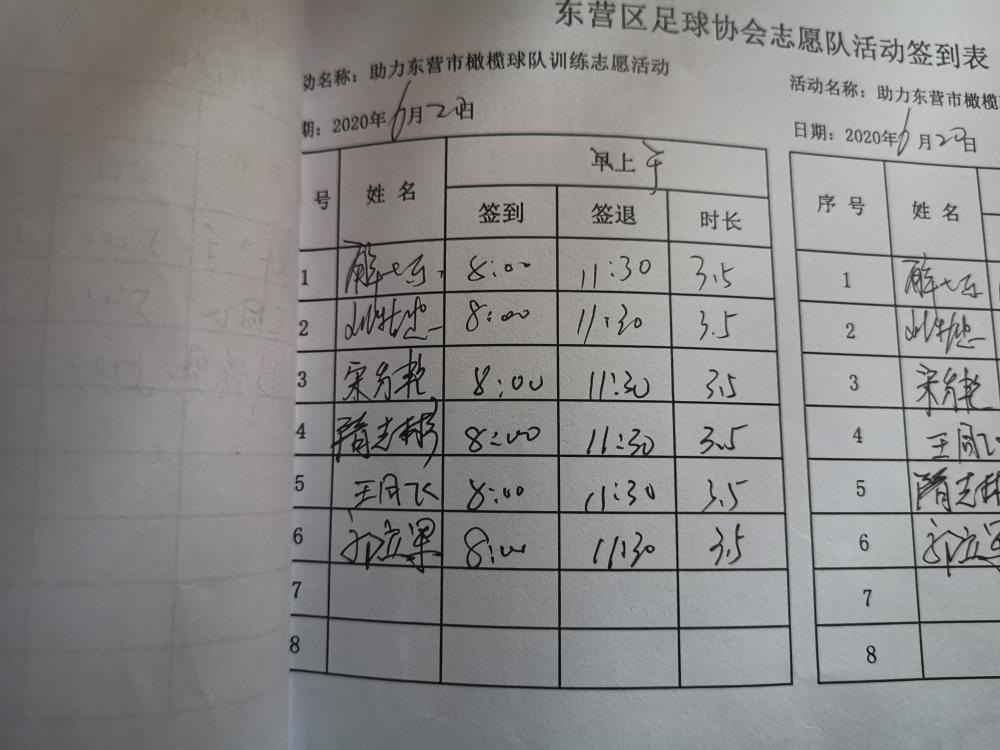 东营区足球协会志愿队活动签到表
动名称：助力东营市橄榄球队训练志愿活动
期：2020年6月20日
号 姓 名 早上
签到 签退 时长
1 8:00 11:30 3.5
2 8:00 11:30 3.5
3 8:00 11:30 3.5
4 隋志彬 8:00 11:30 3.5
5 王同飞 8:00 11:30 3.5
6 郭立军 8:00 11:30 3.5
7
8
活动名称：助力东营市橄榄
日期：2020年6月20日
序 号 姓 名
1
2
3
4 王同飞
5 隋志彬
6 郭立军
7
8